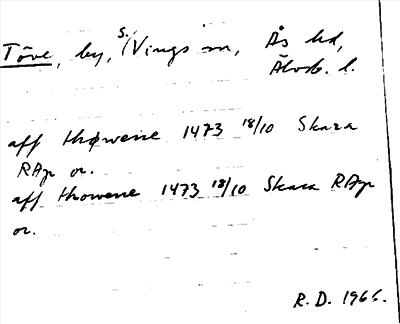 Töve, by, S. Vings sn, Ås hd,
Älvsb. l.
aff thøwene 1473 18/10 Skara
RAp or.
aff thowene 1473 18/10 Skara RAp
or.
R. D. 1966.